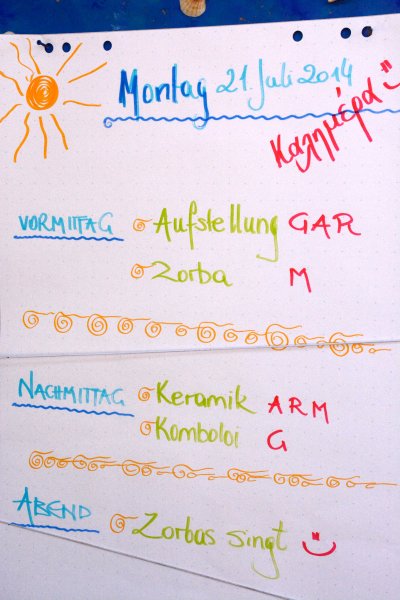 Montag 21. Juli 2014
Καλημέρα
VORMITTAG Aufstellung GAR
Zorba M
NACHMITTAG Keramik ARM
Komboloi G
ABEND Zorbas singt